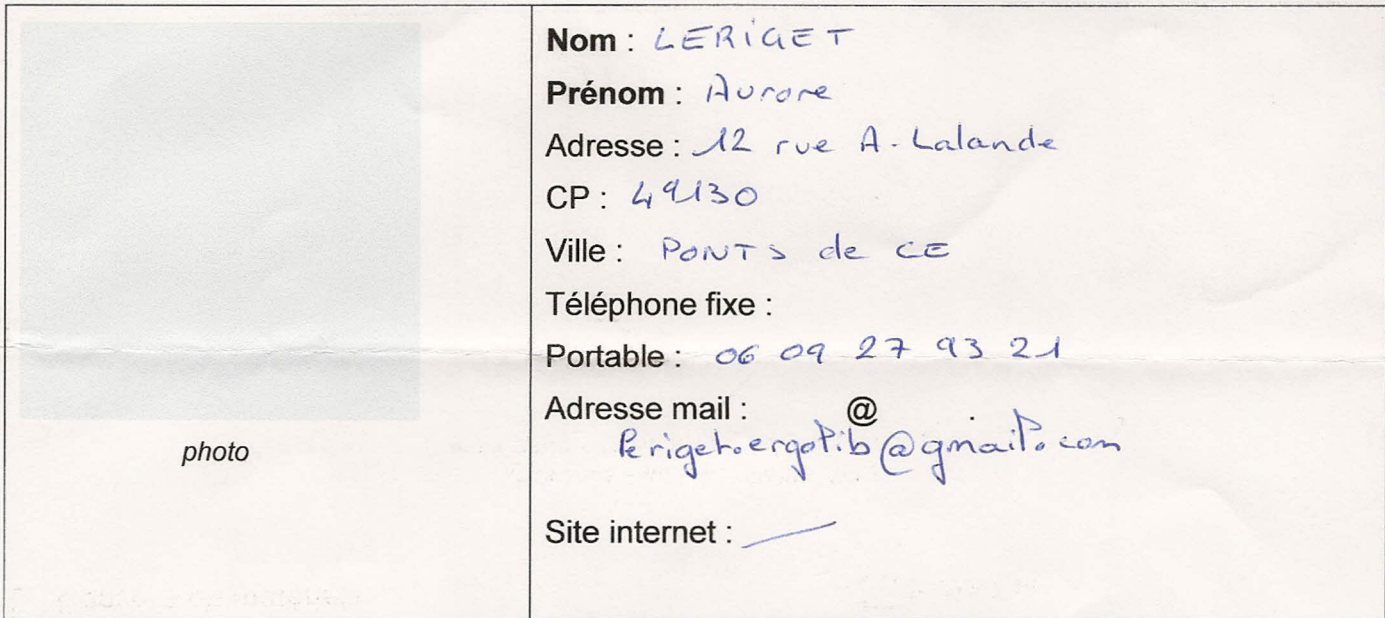 Nom : LERIGET
Prénom : Aurore
Adresse : 12 rue A. Lalande
CP : 49130
Ville : PONTS de CE
Téléphone fixe :
Portable : 06 09 27 93 21
Adresse mail : @
leriget.ergolib@gmail.com
photo
Site internet : —